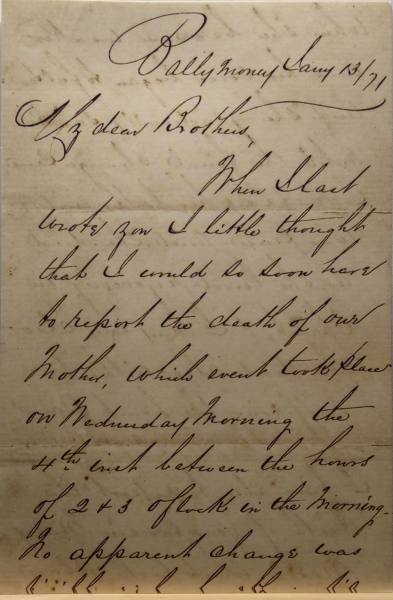 Ballymoney Jany 13/71
My dear Brothers,
When I last
wrote you I little thought
that I would so soon have
to report the death of our
Mother, which event took place
on Wednesday Morning the
4th inst between the hours
of 2 & 3 oclock in the Morning.
No apparent change was